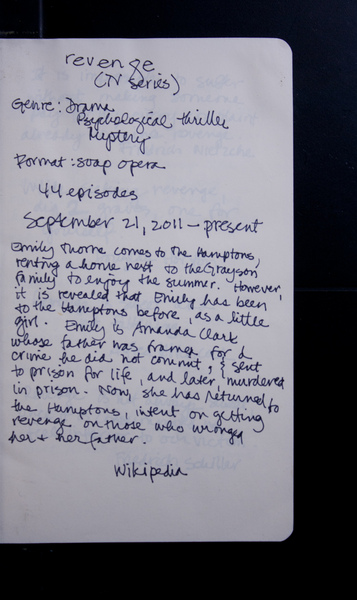 revenge
(TV series)
Genre: Drama
Psychological thriller
Mystery
Format: soap opera
44 episodes
September 21, 2011 – present
Emily Thorne comes to the Hamptons,
renting a home next to the Grayson
family to enjoy the summer. However,
it is revealed that Emily has been
to the Hamptons before, as a little
girl. Emily is Amanda Clark
whose father was framed for a
crime he did not commit, & sent
to prison for life, and later, murdered
in prison. Now, she has returned to
the Hamptons, intent on getting
revenge on those who wronged
her + her father.
Wikipedia